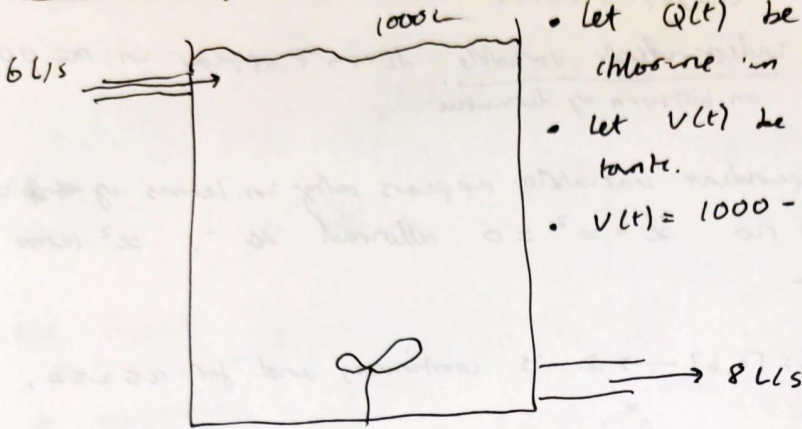 1000L
6 L/s
• Let Q(t) be
chlorine in
• Let V(t) be
tank.
• V(t) = 1000 -
8 L/s